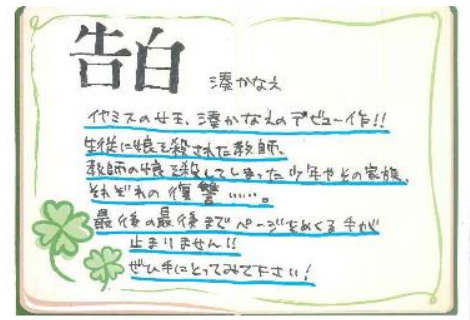 告白 湊かなえ
イヤミスの女王、湊かなえのデビュー作!!
生徒に娘を殺された教師、
教師の娘を殺してしまった少年やその家族、
それぞれの復讐……。
最後の最後までページをめくる手が
止まりません!!
ぜひ手にとってみて下さい!